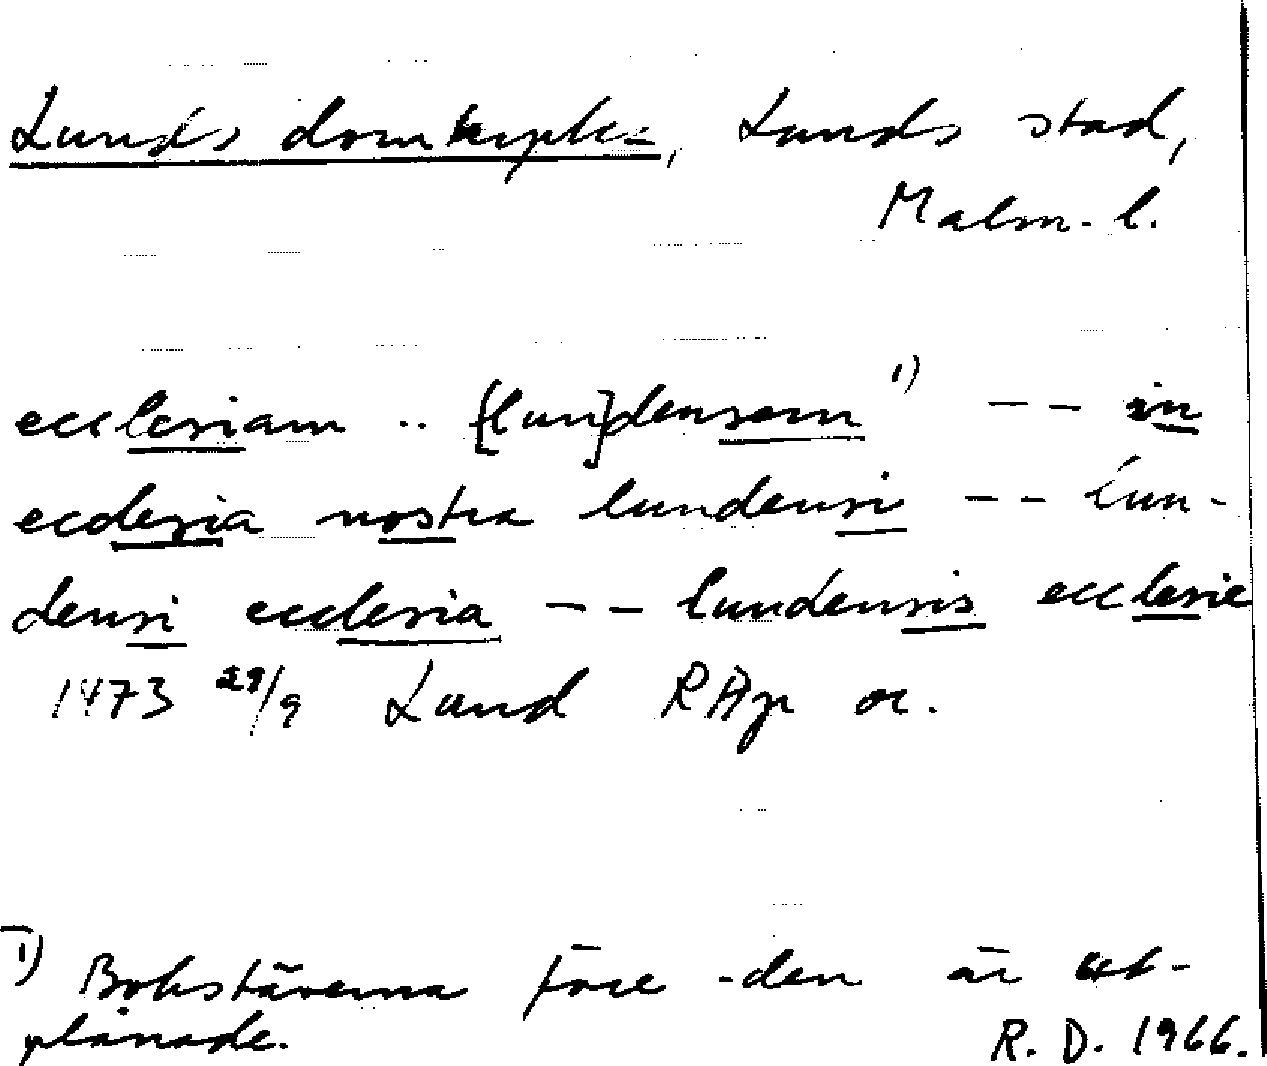 Lunds domkyrka, Lunds stad,
Malm. l.
ecclesiam .. [lun]densem 1) -- in
ecclesia nostra lundensi -- lun-
densi ecclesia -- lundensis ecclesie
1473 29/9 Lund RAp or.
1) Bokstäverna före -den är ut-
plånade.
R. D. 1966.